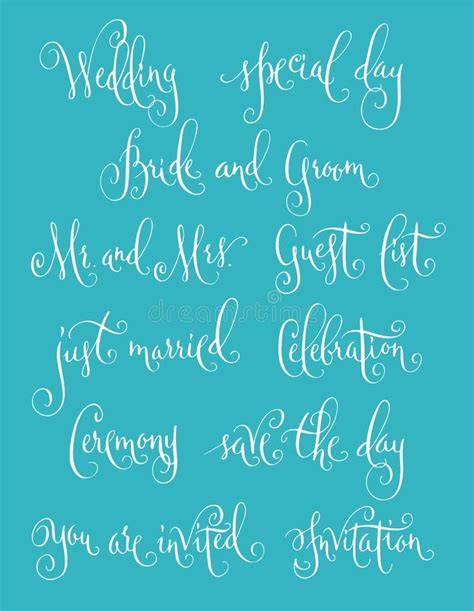 Wedding special day
Bride and Groom
Mr. and Mrs. Guest list
just married Celebration
Ceremony save the day
You are invited Invitation
dreamstime